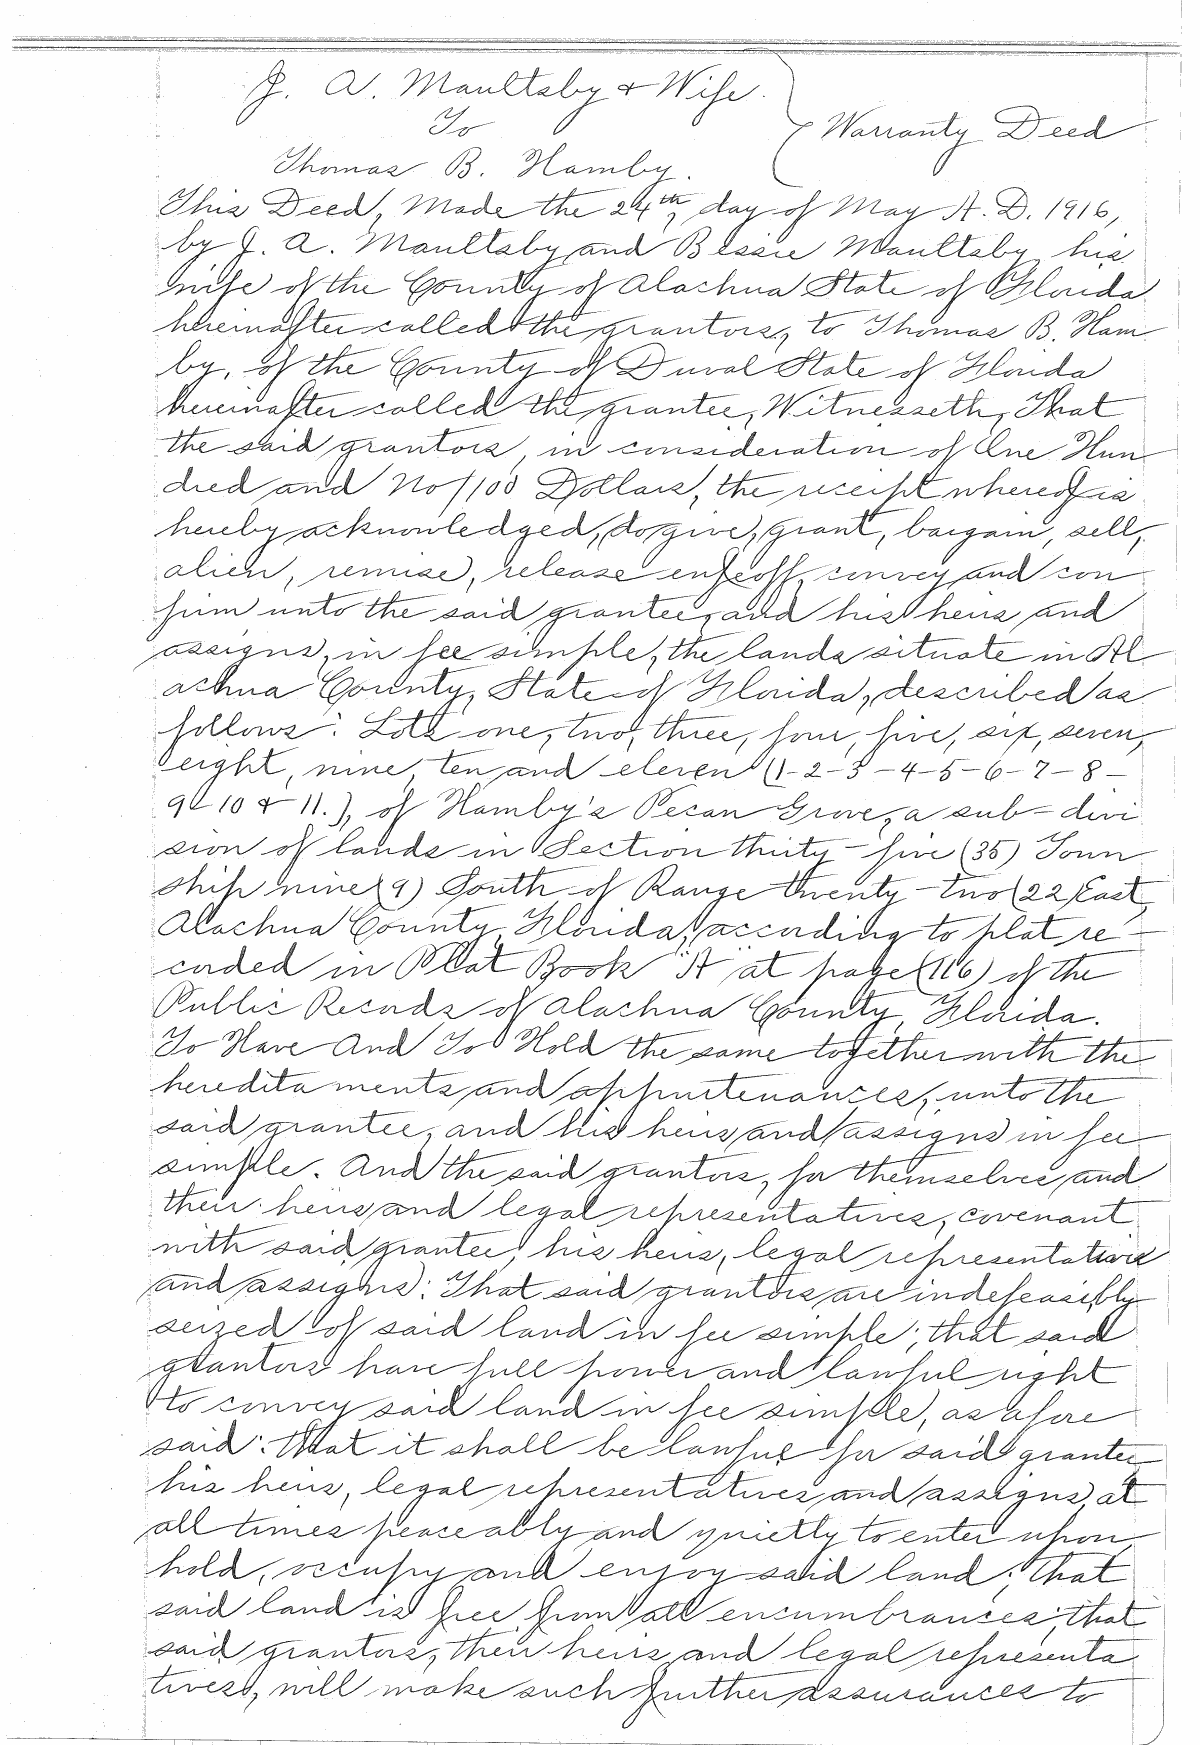 J. A. Maultsby & Wife.
To
Warranty Deed
Thomas B. Hamby.
This Deed, Made the 24th, day of May A. D. 1916,
by J. A. Maultsby and Bessie Maultsby his
wife of the County of Alachua State of Florida
hereinafter called the grantors, to Thomas B. Ham
by, of the County of Duval State of Florida
hereinafter called the grantee, Witnesseth, That
the said grantors, in consideration of One Hun
dred and No/100 Dollars, the receipt whereof is
hereby acknowledged, do give, grant, bargain, sell,
alien, remise, release enfeoff, convey and con
firm unto the said grantee, and his heirs and
assigns, in fee simple, the lands situate in Al
achua County, State of Florida, described as
follows: Lots one, two, three, four, five, six, seven,
eight, nine, ten and eleven (1-2-3-4-5-6-7-8-
9-10 & 11.), of Hamby's Pecan Grove, a sub-divi
sion of lands in Section thirty-five (35) Town
ship nine (9) South of Range twenty-two (22) East,
Alachua County, Florida, according to plat re-
corded in Plat Book "A" at page (116) of the
Public Records of Alachua County, Florida.
To Have And To Hold the same together with the
heredita ments and appurtenances, unto the
said grantee, and his heirs and assigns in fee
simple. And the said grantors, for themselves and
their heirs and legal representatives, covenant
with said grantee, his heirs, legal representatives
and assigns: That said grantors are indefeasibly
seized of said land in fee simple; that said
grantors have full power and lawful right
to convey said land in fee simple, as afore
said: that it shall be lawful for said grantee
his heirs, legal representatives and assigns, at
all times peaceably and quietly to enter upon,
hold, occupy and enjoy said land; that
said land is free from all encumbrances; that
said grantors, their heirs and legal representa
tives, will make such further assurances to